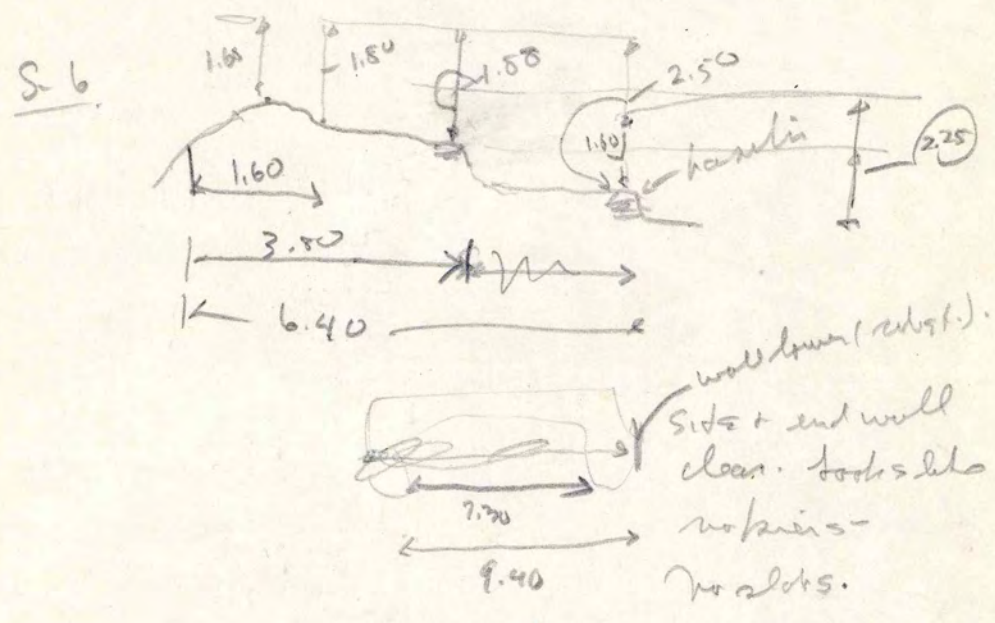 S-6
1.60
1.80
1.88
2.50
1.60
2.25
1.60
3.80
6.40
wall lower (
side + end wall
clear. Looks like
no piers -
no slabs.
7.30
9.40